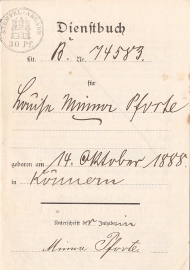 30 Pf.
Dienstbuch
Lit. B. Nr. 74583.
für
Louise Minna Pforte
geboren am 14. Oktober 1888.
in Könnern
Unterschrift der Inhaberin
Minna Pforte.